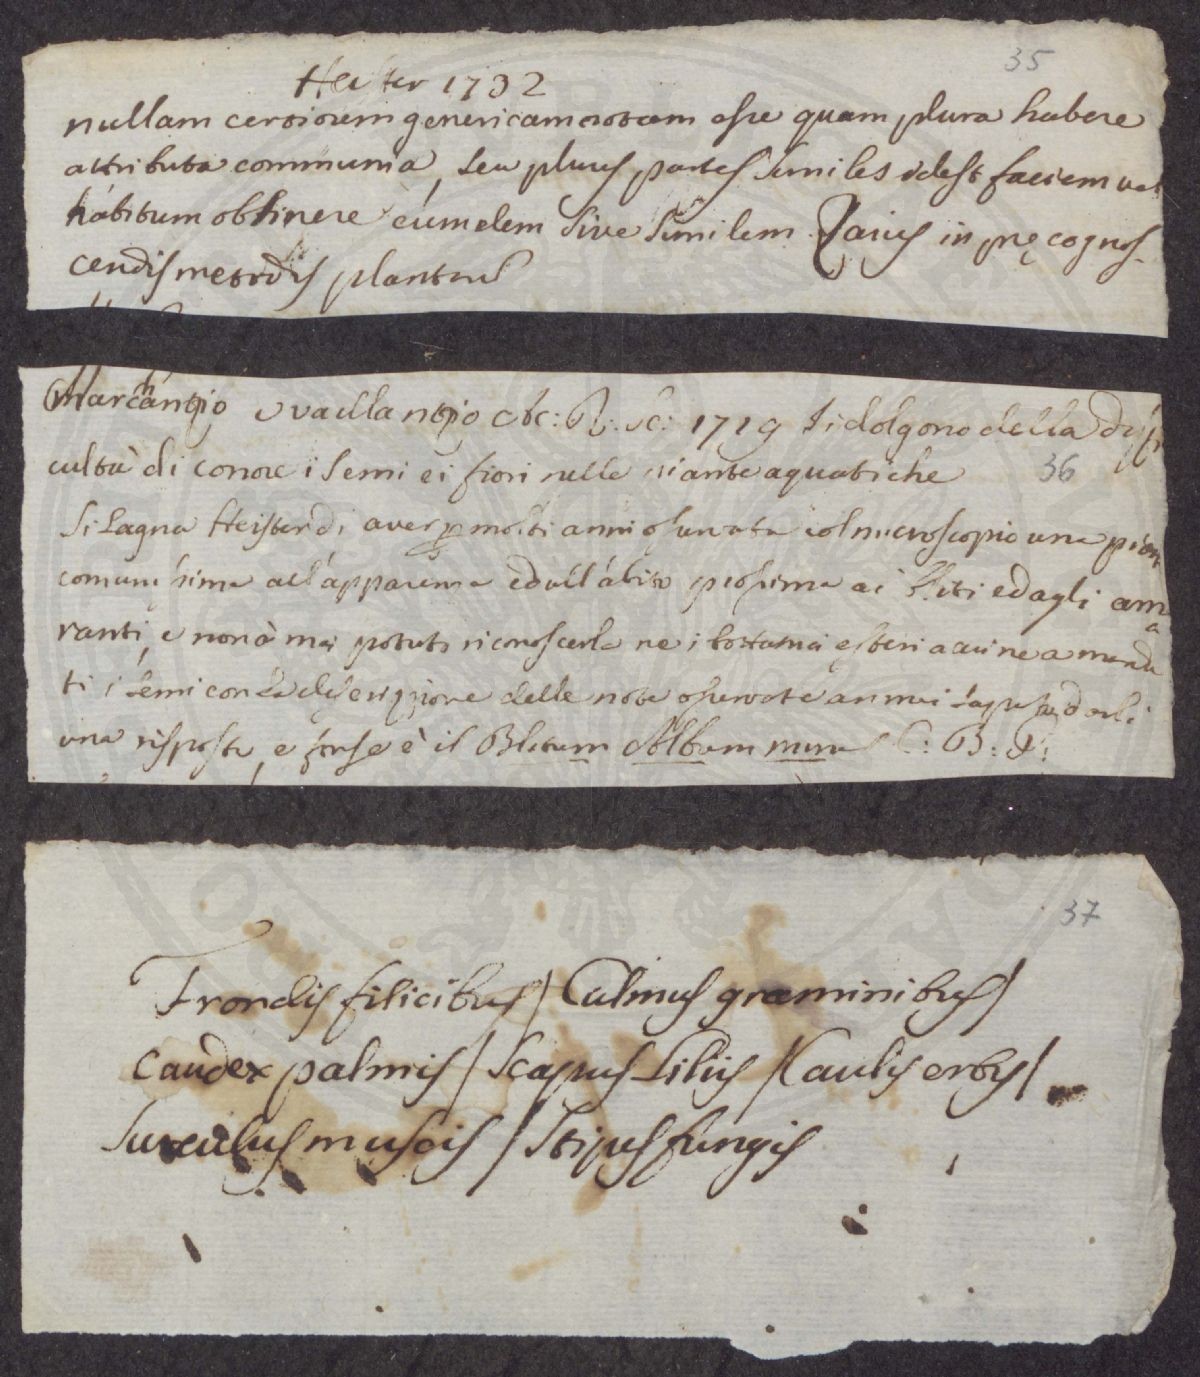 35
Heister 1732
nullam certiorem genericam notam esse quam plura habere
attributa communia, seu plures partes similes idest faciem vel
habitum obtinere eumdem sive similem Raius in pręcognos-
cendis metodis plantar
Marchantio e vaillantio Ac: R: Sc: 1719 Si dolgono della diffi
cultà di conoscere i semi e i fiori nelle piante aquatiche
36
Si Lagna Heister di aver p molti anni osservata col microscopio una pian
comunissima all'apparenza ed all'abito prossima ai Bliti ed agli ama
ranti, e non à mai potuto riconoscerla ne i bottanici esteri a cui ne a manda
ti i semi con la descrizione delle note osservate an mai saputo darli
una risposta, e forse è il Blitum Album minus C: B: P:
37
Frondis filicibus / Culmus graminibus /
Caudex palmis / Scapus Liliis / Caulis erbis /
Surculus muscis / Stipes fungis